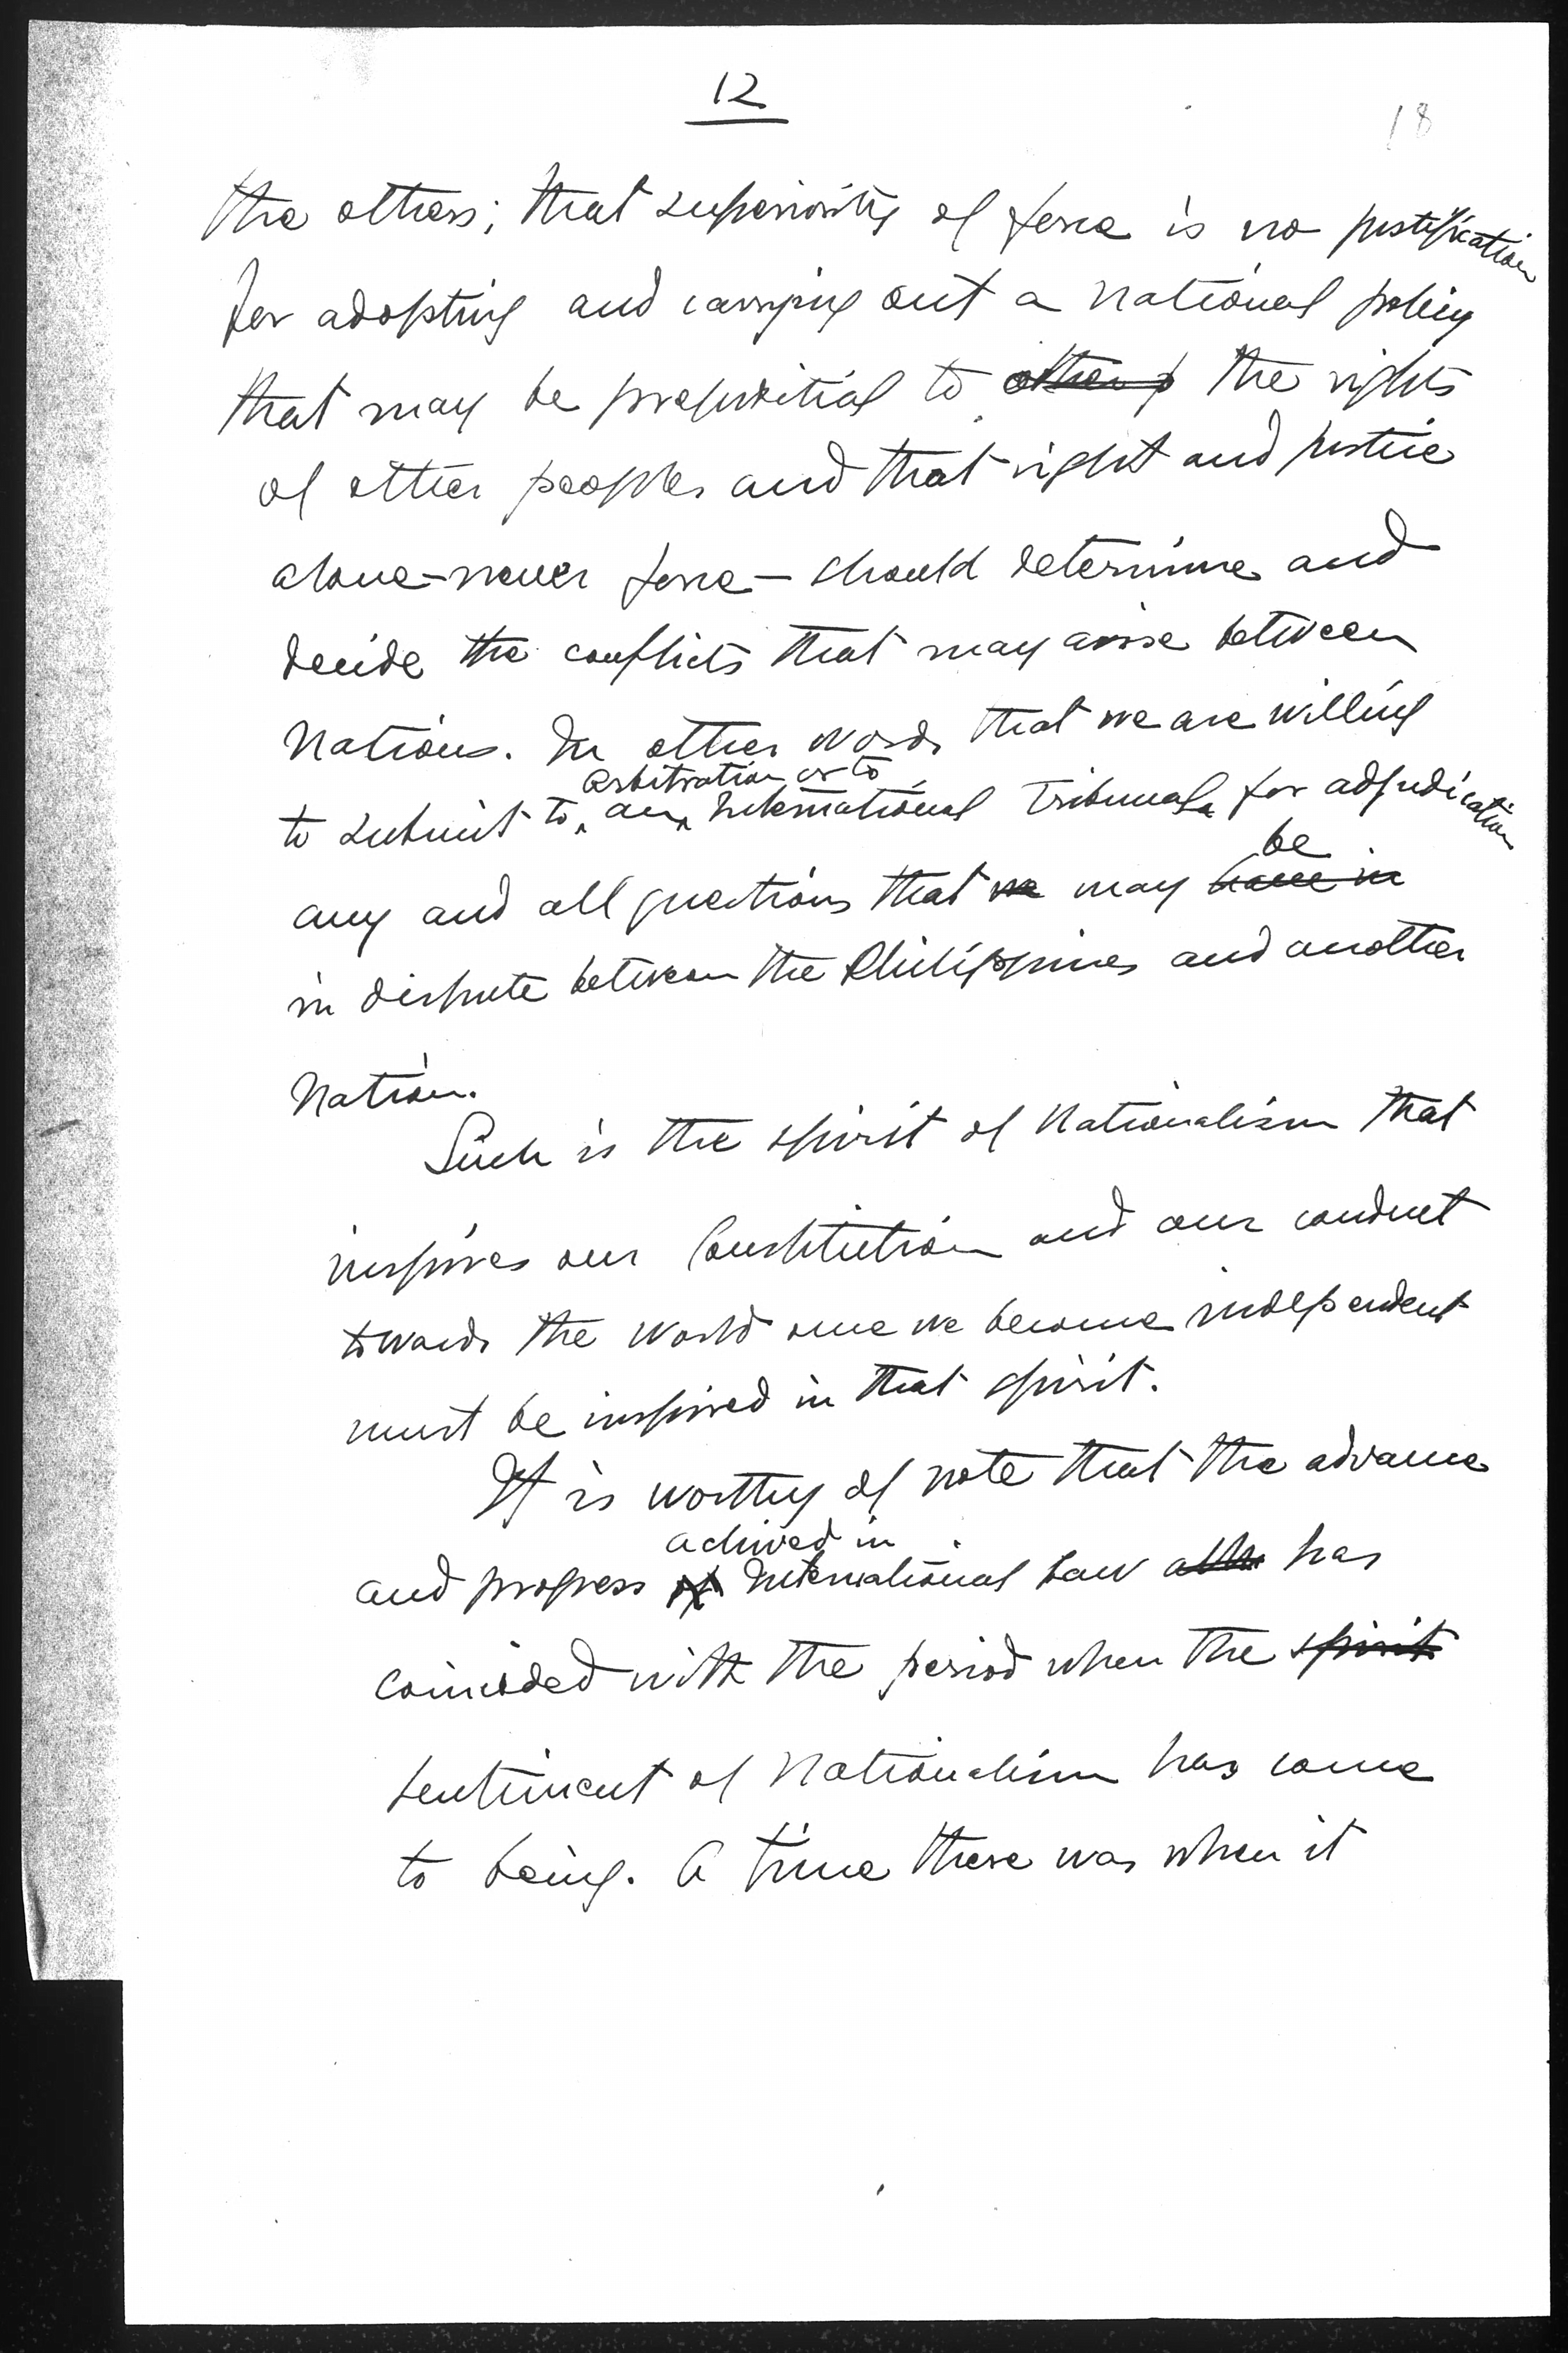 12
18
the others; that superiority of force is no justification
for adopting and carrying out a national policy
that may be prejuditial to the rights
of other peoples and that right and justice
alone—never force—should determine and
decide the conflicts that may arise between
Nations. In other words that we are willing
arbitration or to
to submit to an International Tribunal for adjudication
be
any and all questions that we may have in
in dispute between the Philippines and another
Nation.
Such is the spirit of Nationalism that
inspires our Constitution and our conduct
towards the world once we become independent
must be inspired in that spirit.
It is worthy of note that the advance
achived in
and progress of International Law has
coincided with the period when the spirit
sentiment of Nationalism has come
to being. A time there was when it